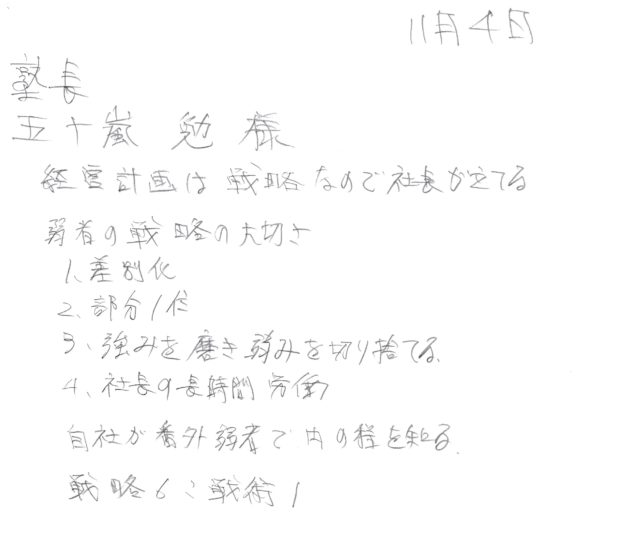 11月4日
塾長
五十嵐 勉 様
経営計画は戦略なので社長が立てる
弱者の戦略の大切さ
1、差別化
2、部分1位
3、強みを磨き弱みを切り捨てる
4、社長の長時間労働
自社が番外弱者で内の程を知る
戦略6：戦術1